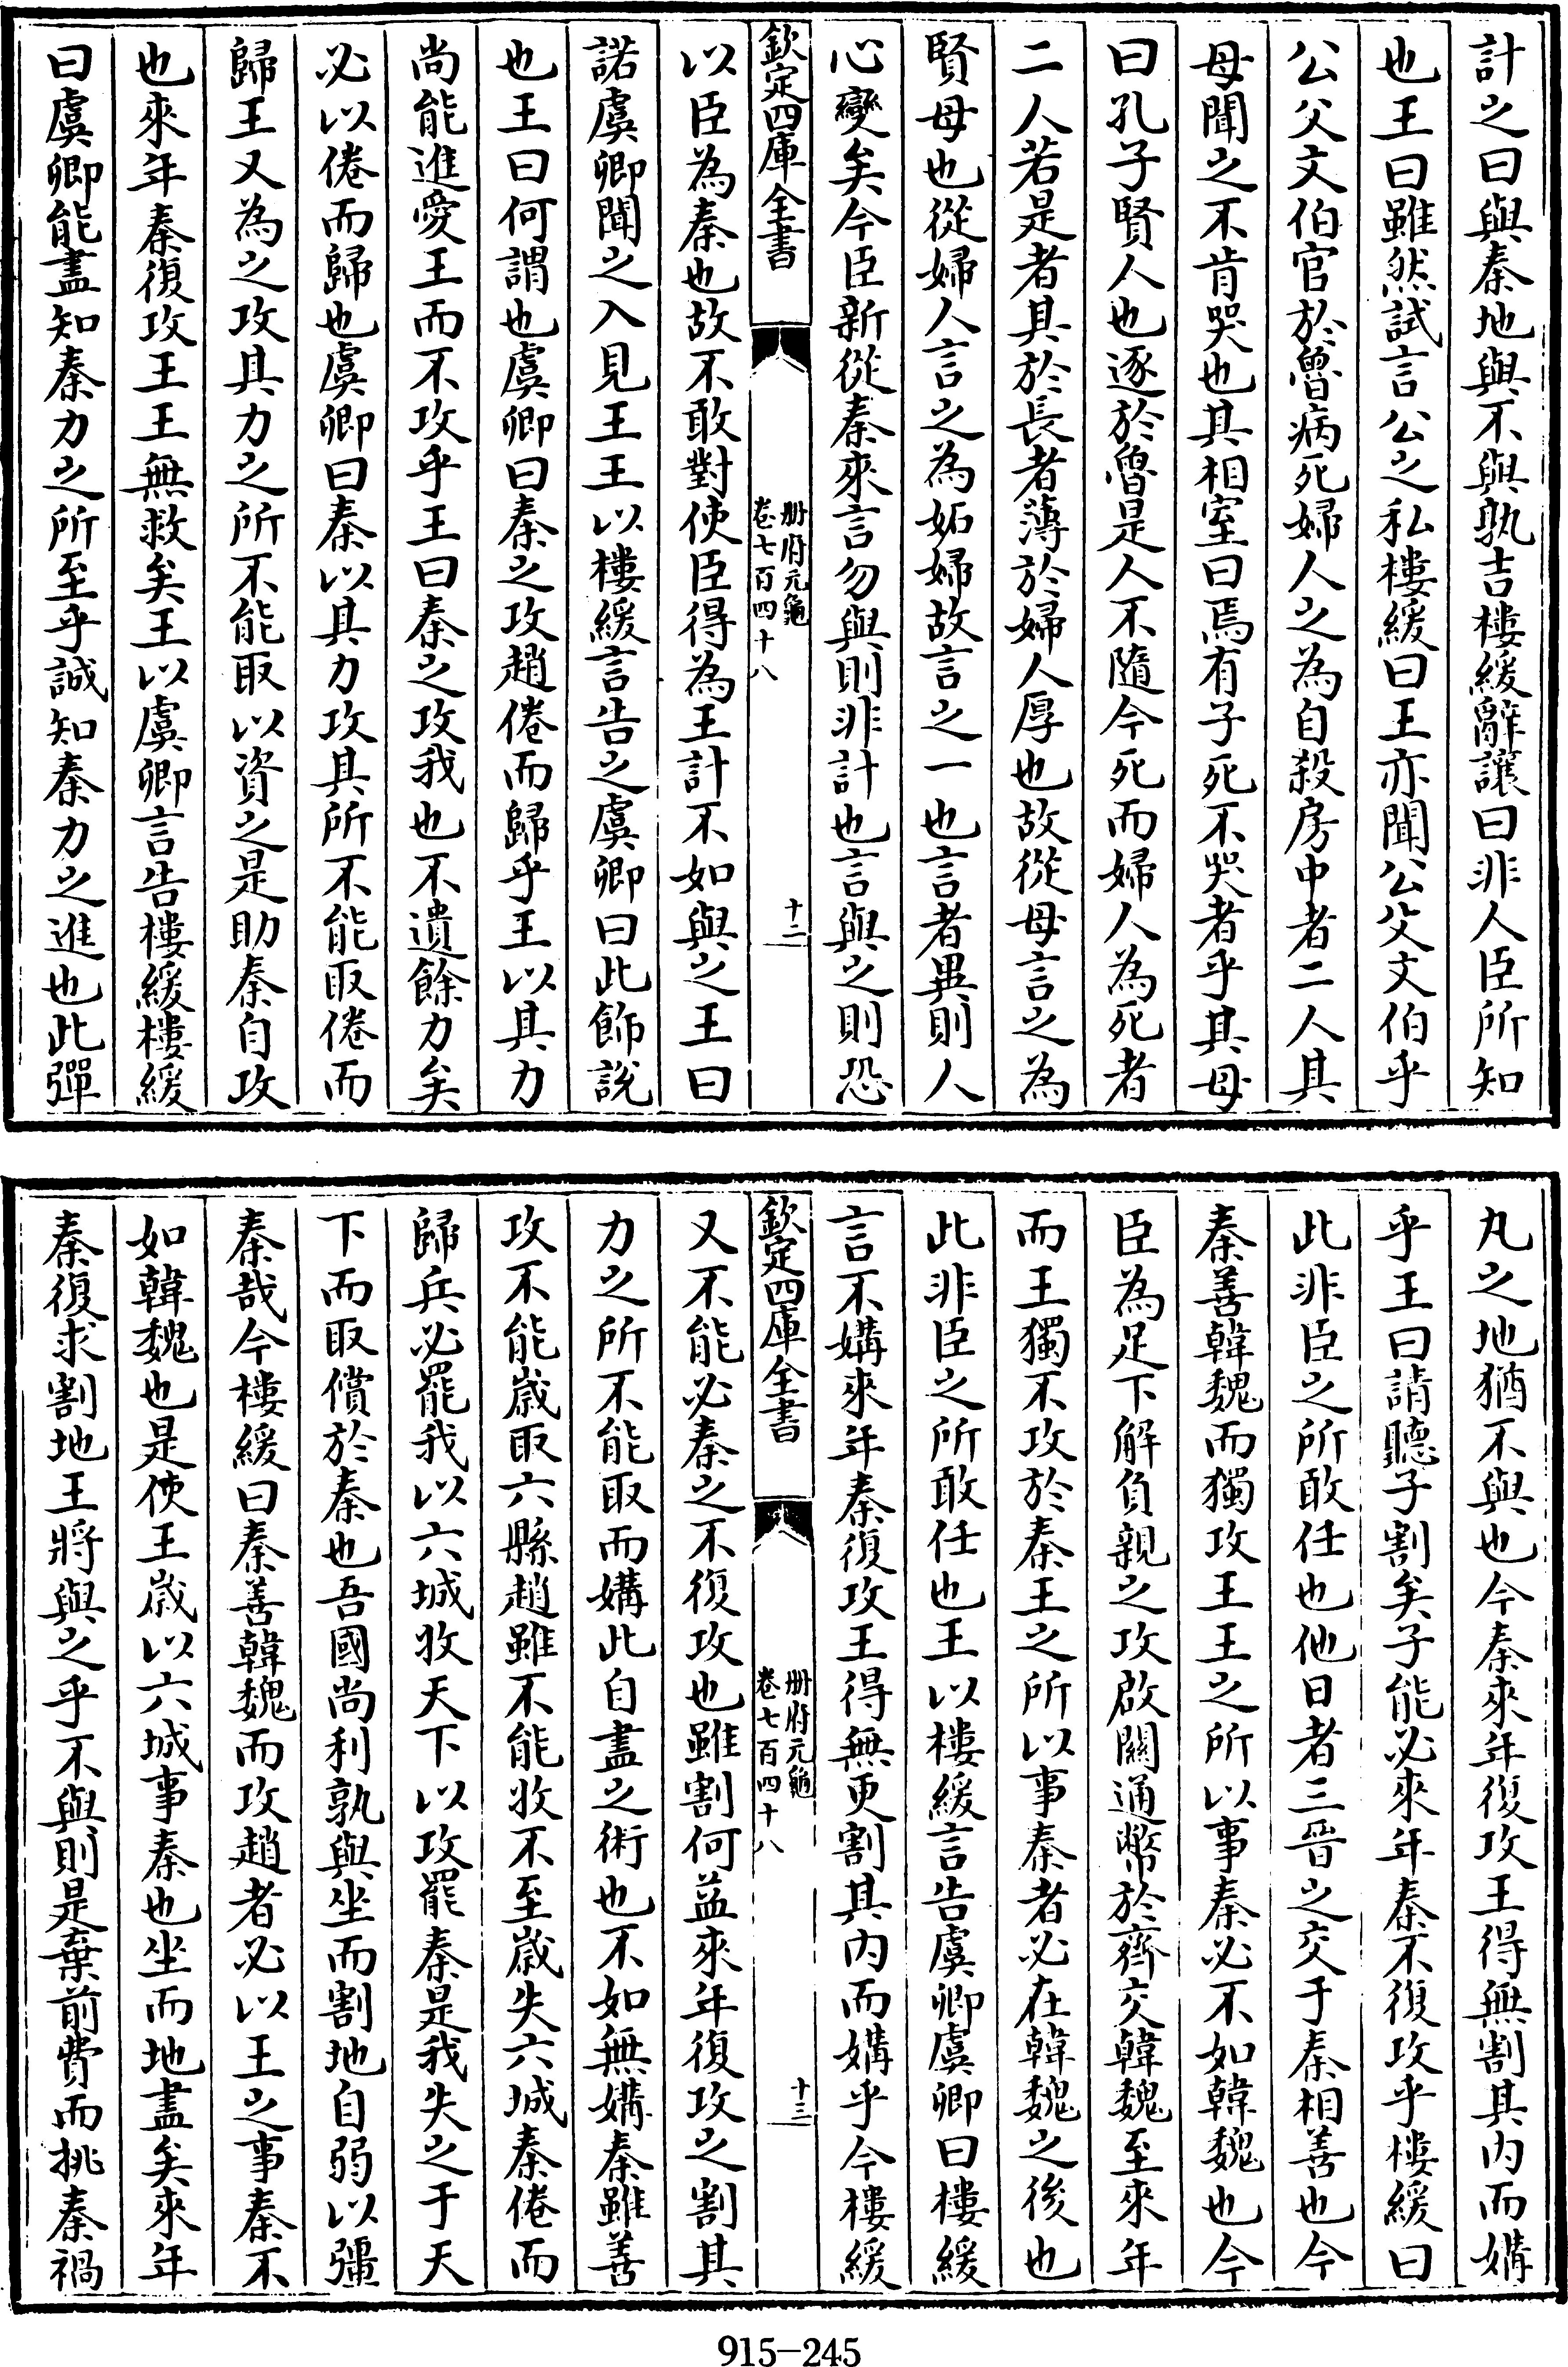 計之曰與秦地與不與孰吉樓緩辭讓曰非人臣所知
也王曰雖然試言公之私樓緩曰王亦聞公父文伯乎
公父文伯官於魯病死婦人之為自殺房中者二人其
母聞之不肯哭也其相室曰焉有子死不哭者乎其母
曰孔子賢人也逐於魯是人不隨今死而婦人為死者
二人若是者其於長者薄於婦人厚也故從母言之為
賢母也從婦人言之為妬婦故言之一也言者異則人
心變矣今臣新從秦來言勿與則非計也言與之則恐
欽定四庫全書
册府元龜
卷七百四十八
十二
以臣為秦也故不敢對使臣得為王計不如與之王曰
諾虞卿聞之入見王王以樓緩言告之虞卿曰此飾說
也王曰何謂也虞卿曰秦之攻趙倦而歸乎王以其力
尚能進愛王而不攻乎王曰秦之攻我也不遺餘力矣
必以倦而歸也虞卿曰秦以其力攻其所不能取倦而
歸王又為之攻其力之所不能取以資之是助秦自攻
也來年秦復攻王王無救矣王以虞卿言告樓緩樓緩
曰虞卿能盡知秦力之所至乎誠知秦力之進也此彈
丸之地猶不與也今秦來年復攻王得無割其內而媾
乎王曰請聽子割矣子能必來年秦不復攻乎樓緩曰
此非臣之所敢任也他日者三晉之交于秦相善也今
秦善韓魏而獨攻王王之所以事秦必不如韓魏也今
臣為足下解負親之攻啟關通幣於齊交韓魏至來年
而王獨不攻於秦王之所以事秦者必在韓魏之後也
此非臣之所敢任也王以樓緩言告虞卿虞卿曰樓緩
言不媾來年秦復攻王得無更割其內而媾乎今樓緩
欽定四庫全書
册府元龜
卷七百四十八
十三
又不能必秦之不復攻也雖割何益來年復攻之割其
力之所不能取而媾此自盡之術也不如無媾秦雖善
攻不能歲取六縣趙雖不能收不至歲失六城秦倦而
歸兵必罷我以六城收天下以攻罷秦是我失之于天
下而取償於秦也吾國尚利孰與坐而割地自弱以彊
秦哉今樓緩曰秦善韓魏而攻趙者必以王之事秦不
如韓魏也是使王歲以六城事秦也坐而地盡矣來年
秦復求割地王將與之乎不與則是棄前費而挑秦禍
915-245